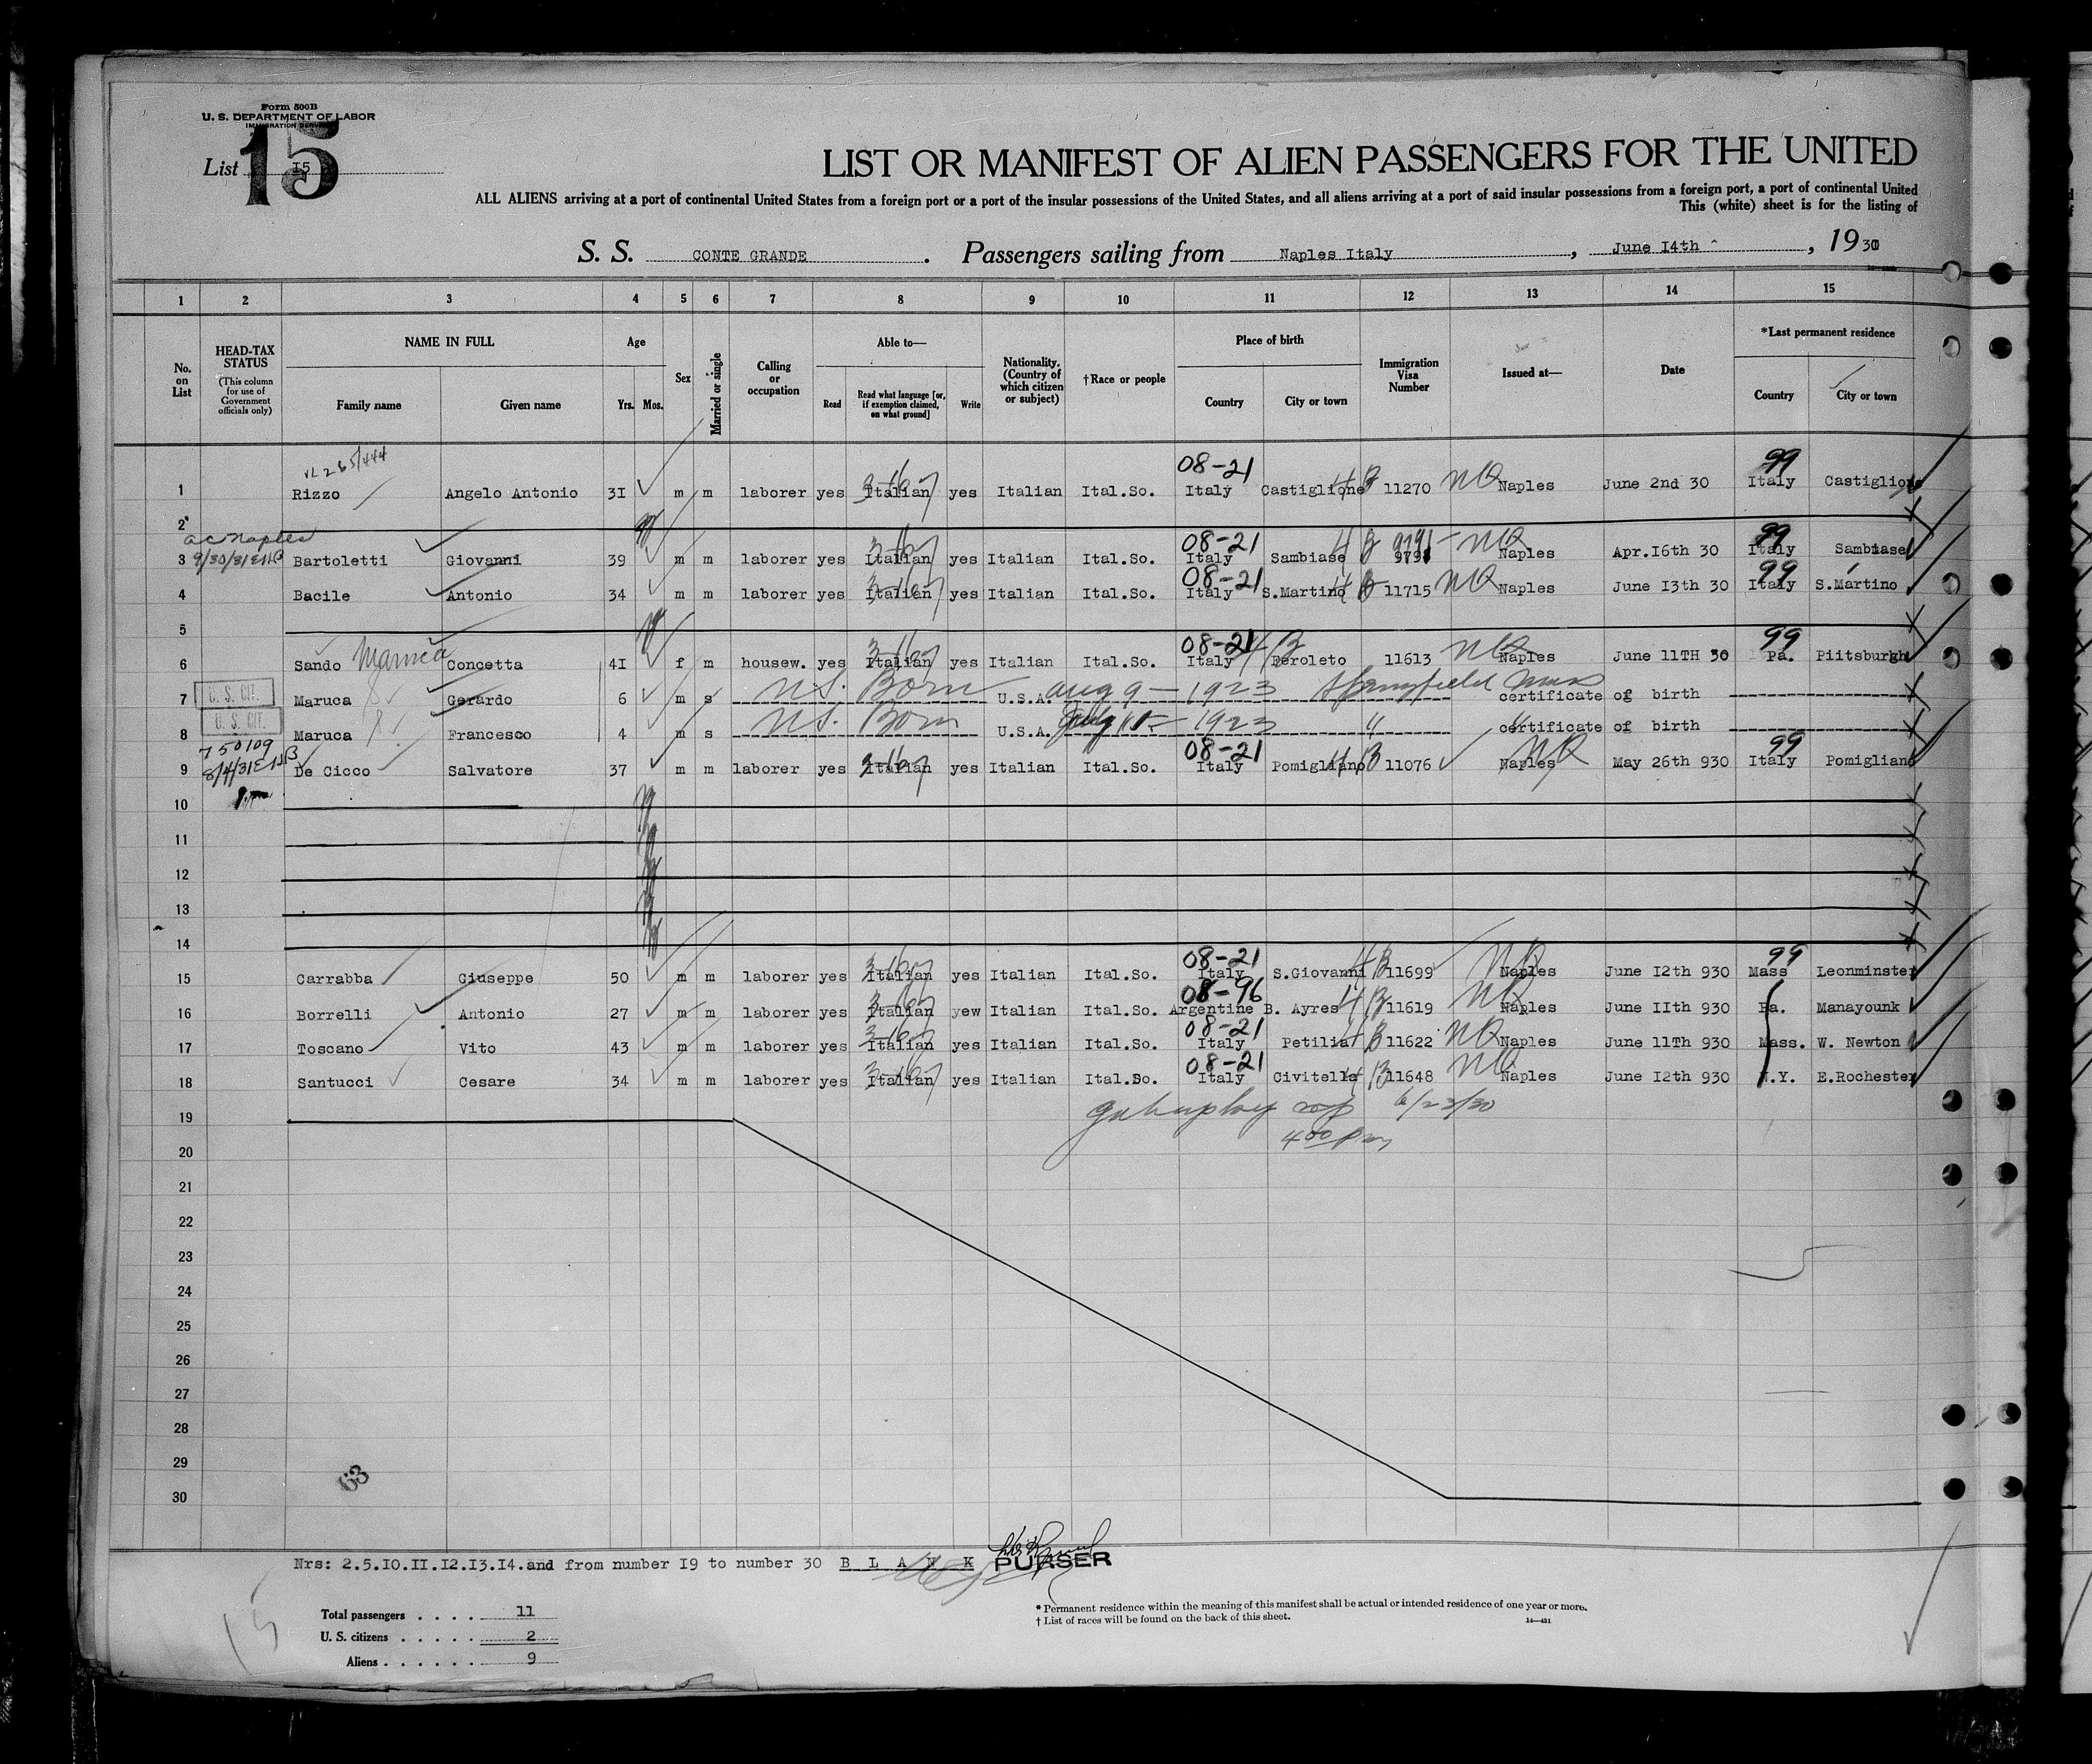 Form 500B
U. S. DEPARTMENT OF LABOR
IMMIGRATION SERVICE
List 15
15
LIST OR MANIFEST OF ALIEN PASSENGERS FOR THE UNITED
ALL ALIENS arriving at a port of continental United States from a foreign port or a port of the insular possessions of the United States, and all aliens arriving at a port of said insular possessions from a foreign port, a port of continental United
This (white) sheet is for the listing of
S. S. CONTE GRANDE . Passengers sailing from Naples Italy , June I4th , 1930
1 2 3 4 5 6 7 8 9 10 11 12 13 14 15
No. on List
HEAD-TAX STATUS (This column for use of Government officials only)
NAME IN FULL Family name Given name
Age Yrs. Mos.
Sex
Married or single
Calling or occupation
Able to— Read Read what language [or, if exemption claimed, on what ground] Write
Nationality. (Country of which citizen or subject)
†Race or people
Place of birth Country City or town
Immigration Visa Number
Issued at—
Date
*Last permanent residence Country City or town
08-21 99
1 Rizzo Angelo Antonio 3I m m laborer yes Italian yes Italian Ital.So. Italy Castiglione 11270 NQ Naples June 2nd 30 Italy Castiglione
2
ac Naples 08-21 99
3 9/30/31 Bartoletti Giovanni 39 m m laborer yes Italian yes Italian Ital.So. Italy Sambiase 9791 NQ Naples Apr.I6th 30 Italy Sambiase
08-21 99
4 Bacile Antonio 34 m m laborer yes Italian yes Italian Ital.So. Italy S.Martino 11715 NQ Naples June I3th 30 Italy S.Martino
5
08-21 99
6 Sando Maruca Concetta 4I f m housew. yes Italian yes Italian Ital.So. Italy Feroleto 11613 NQ Naples June 11TH 30 Pa. Piitsburgh
7 U. S. CIT. Maruca Gerardo 6 m s U.S. Born U.S.A. Aug 9 - 1923 Springfield Mass certificate of birth
8 U. S. CIT. Maruca Francesco 4 m s U.S. Born U.S.A. 1923 " certificate of birth
750109 08-21 99
9 8/4/31 De Cicco Salvatore 37 m m laborer yes Italian yes Italian Ital.So. Italy Pomigliano 11076 NQ Naples May 26th 930 Italy Pomigliano
10
11
12
13
14
08-21 99
15 Carrabba Giuseppe 50 m m laborer yes Italian yes Italian Ital.So. Italy S.Giovanni 11699 NQ Naples June I2th 930 Mass Leonminster
08-96
16 Borrelli Antonio 27 m m laborer yes Italian yew Italian Ital.So. Argentine B. Ayres 11619 NQ Naples June IIth 930 Pa. Manayounk
08-21
17 Toscano Vito 43 m m laborer yes Italian yes Italian Ital.So. Italy Petilia 11622 NQ Naples June 11Th 930 Mass. W. Newton
08-21
18 Santucci Cesare 34 m m laborer yes Italian yes Italian Ital.So. Italy Civitella 11648 NQ Naples June I2th 930 N.Y. E.Rochester
19 6/23/30
20 4 00 pm
21
22
23
24
25
26
27
28
29
63
30
Nrs: 2.5.IO.II.I2.I3.I4.and from number I9 to number 30 B L A N K PURSER
Total passengers . . . . 11
U. S. citizens . . . . . 2
Aliens . . . . . . 9
* Permanent residence within the meaning of this manifest shall be actual or intended residence of one year or more.
† List of races will be found on the back of this sheet.
14—431